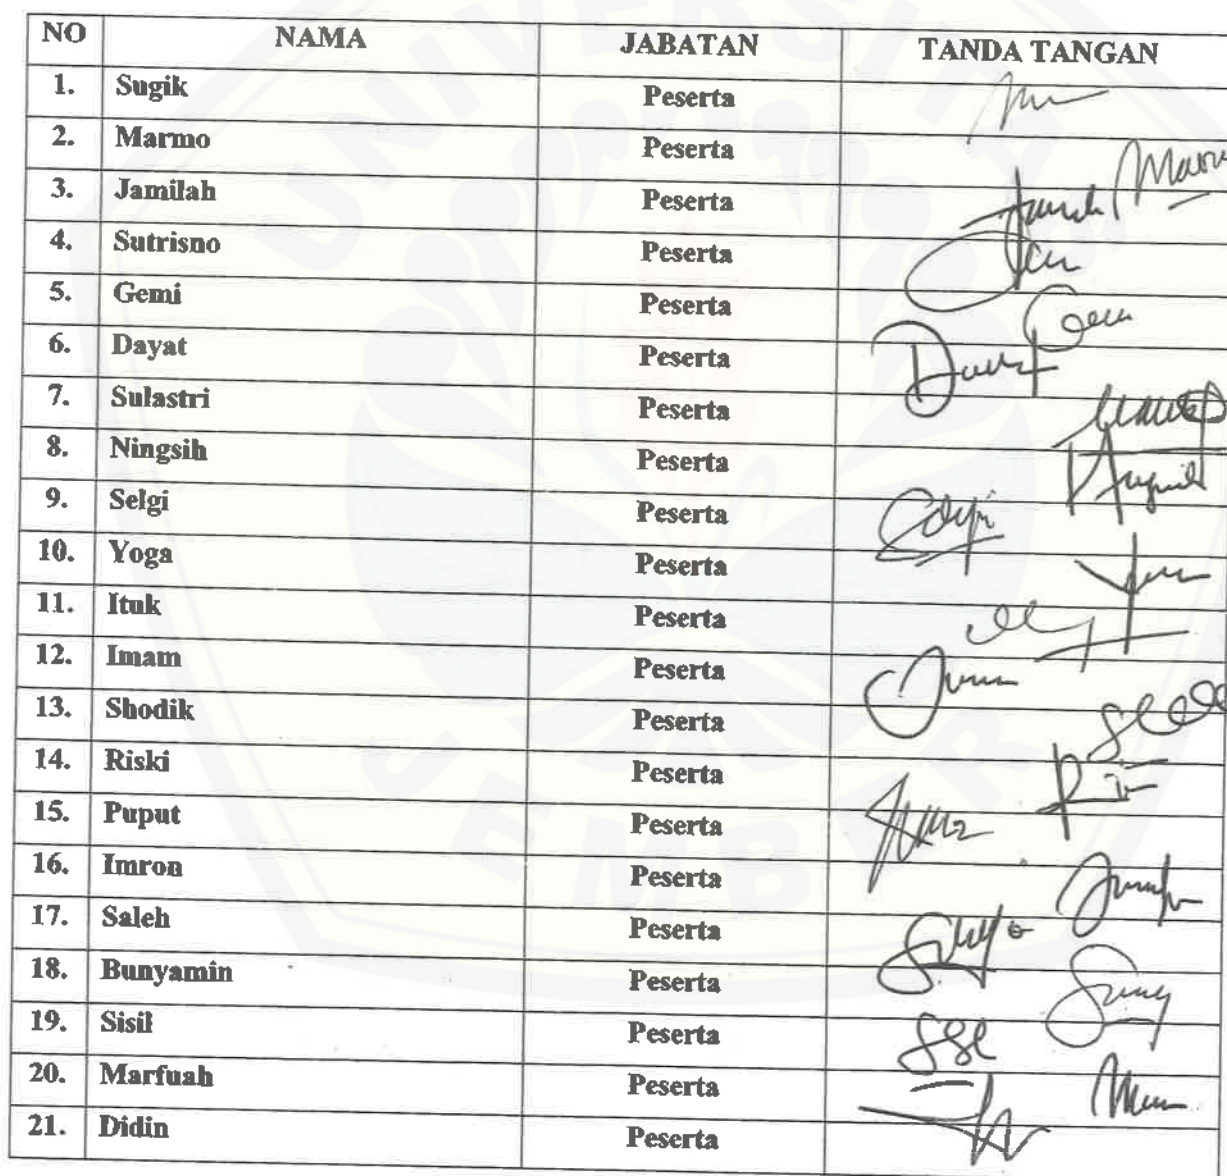 NO NAMA JABATAN TANDA TANGAN
1. Sugik Peserta
2. Marmo Peserta
3. Jamilah Peserta
4. Sutrisno Peserta
5. Gemi Peserta
6. Dayat Peserta
7. Sulastri Peserta
8. Ningsih Peserta
9. Selgi Peserta
10. Yoga Peserta
11. Ituk Peserta
12. Imam Peserta
13. Shodik Peserta
14. Riski Peserta
15. Puput Peserta
16. Imron Peserta
17. Saleh Peserta
18. Bunyamin Peserta
19. Sisil Peserta
20. Marfuah Peserta
21. Didin Peserta